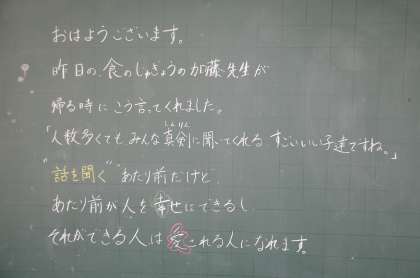 おはようございます。
昨日の、食のじゅぎょうの加藤先生が
帰る時にこう言ってくれました。
「人数多くてもみんな真剣に聞いてくれる すごいいい子達ですね。」
"話を聞く" あたり前だけど
あたり前が人を幸せにできるし
それができる人は愛される人になれます。